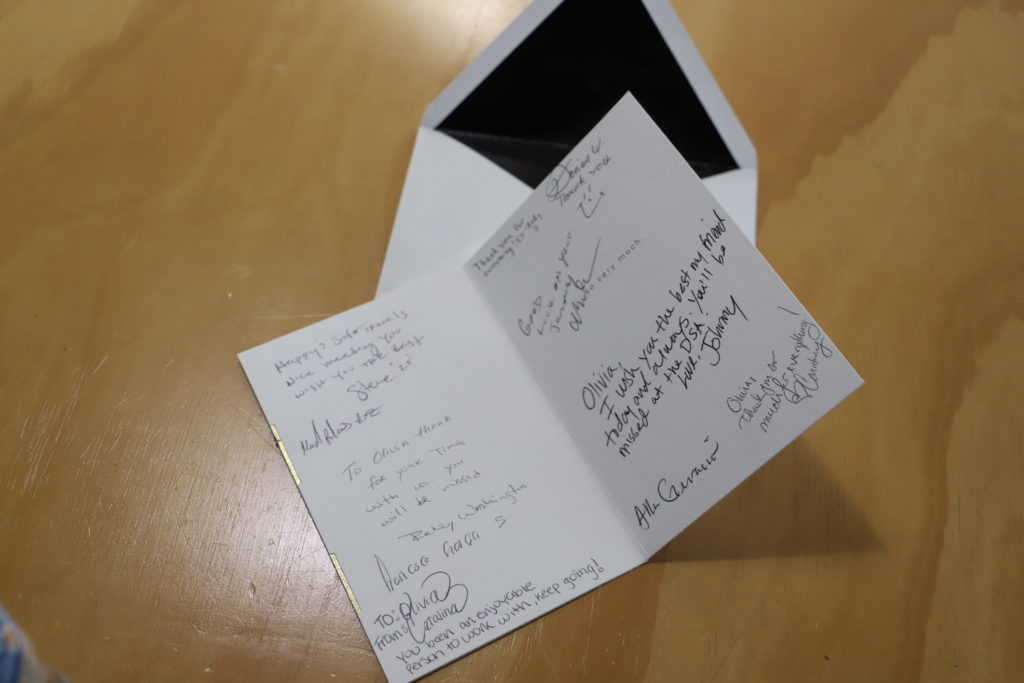 Happy & Safe Travels
Nice meeting you
wish you the Best
Steve
To Olivia thank
for your Time
with us. you
will be missed
Betsy Washington
Garcia
TO: Olivia
From: Catalina
you been an enjoyable
person to work with, keep going!
Thank you for
Thank you
Good
Luck on your
Journey
very much.
Olivia,
I wish you the best my friend
today and always. You'll be
missed at the DSA
Love, Johnny
Olivia,
Thank you so
much for everything!